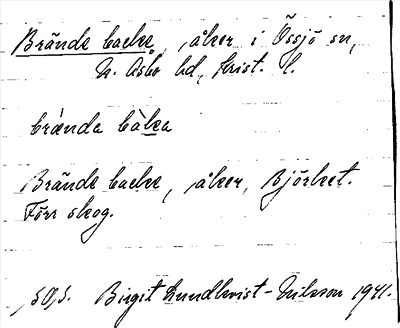 Brände backe, åker i Össjö sn,
N. Åsbo hd, Krist. l.
brä̀nda bàka
Brände backe, åker, Björket.
Förr skog.
Birgit Lundkvist-Nilsson 1941.